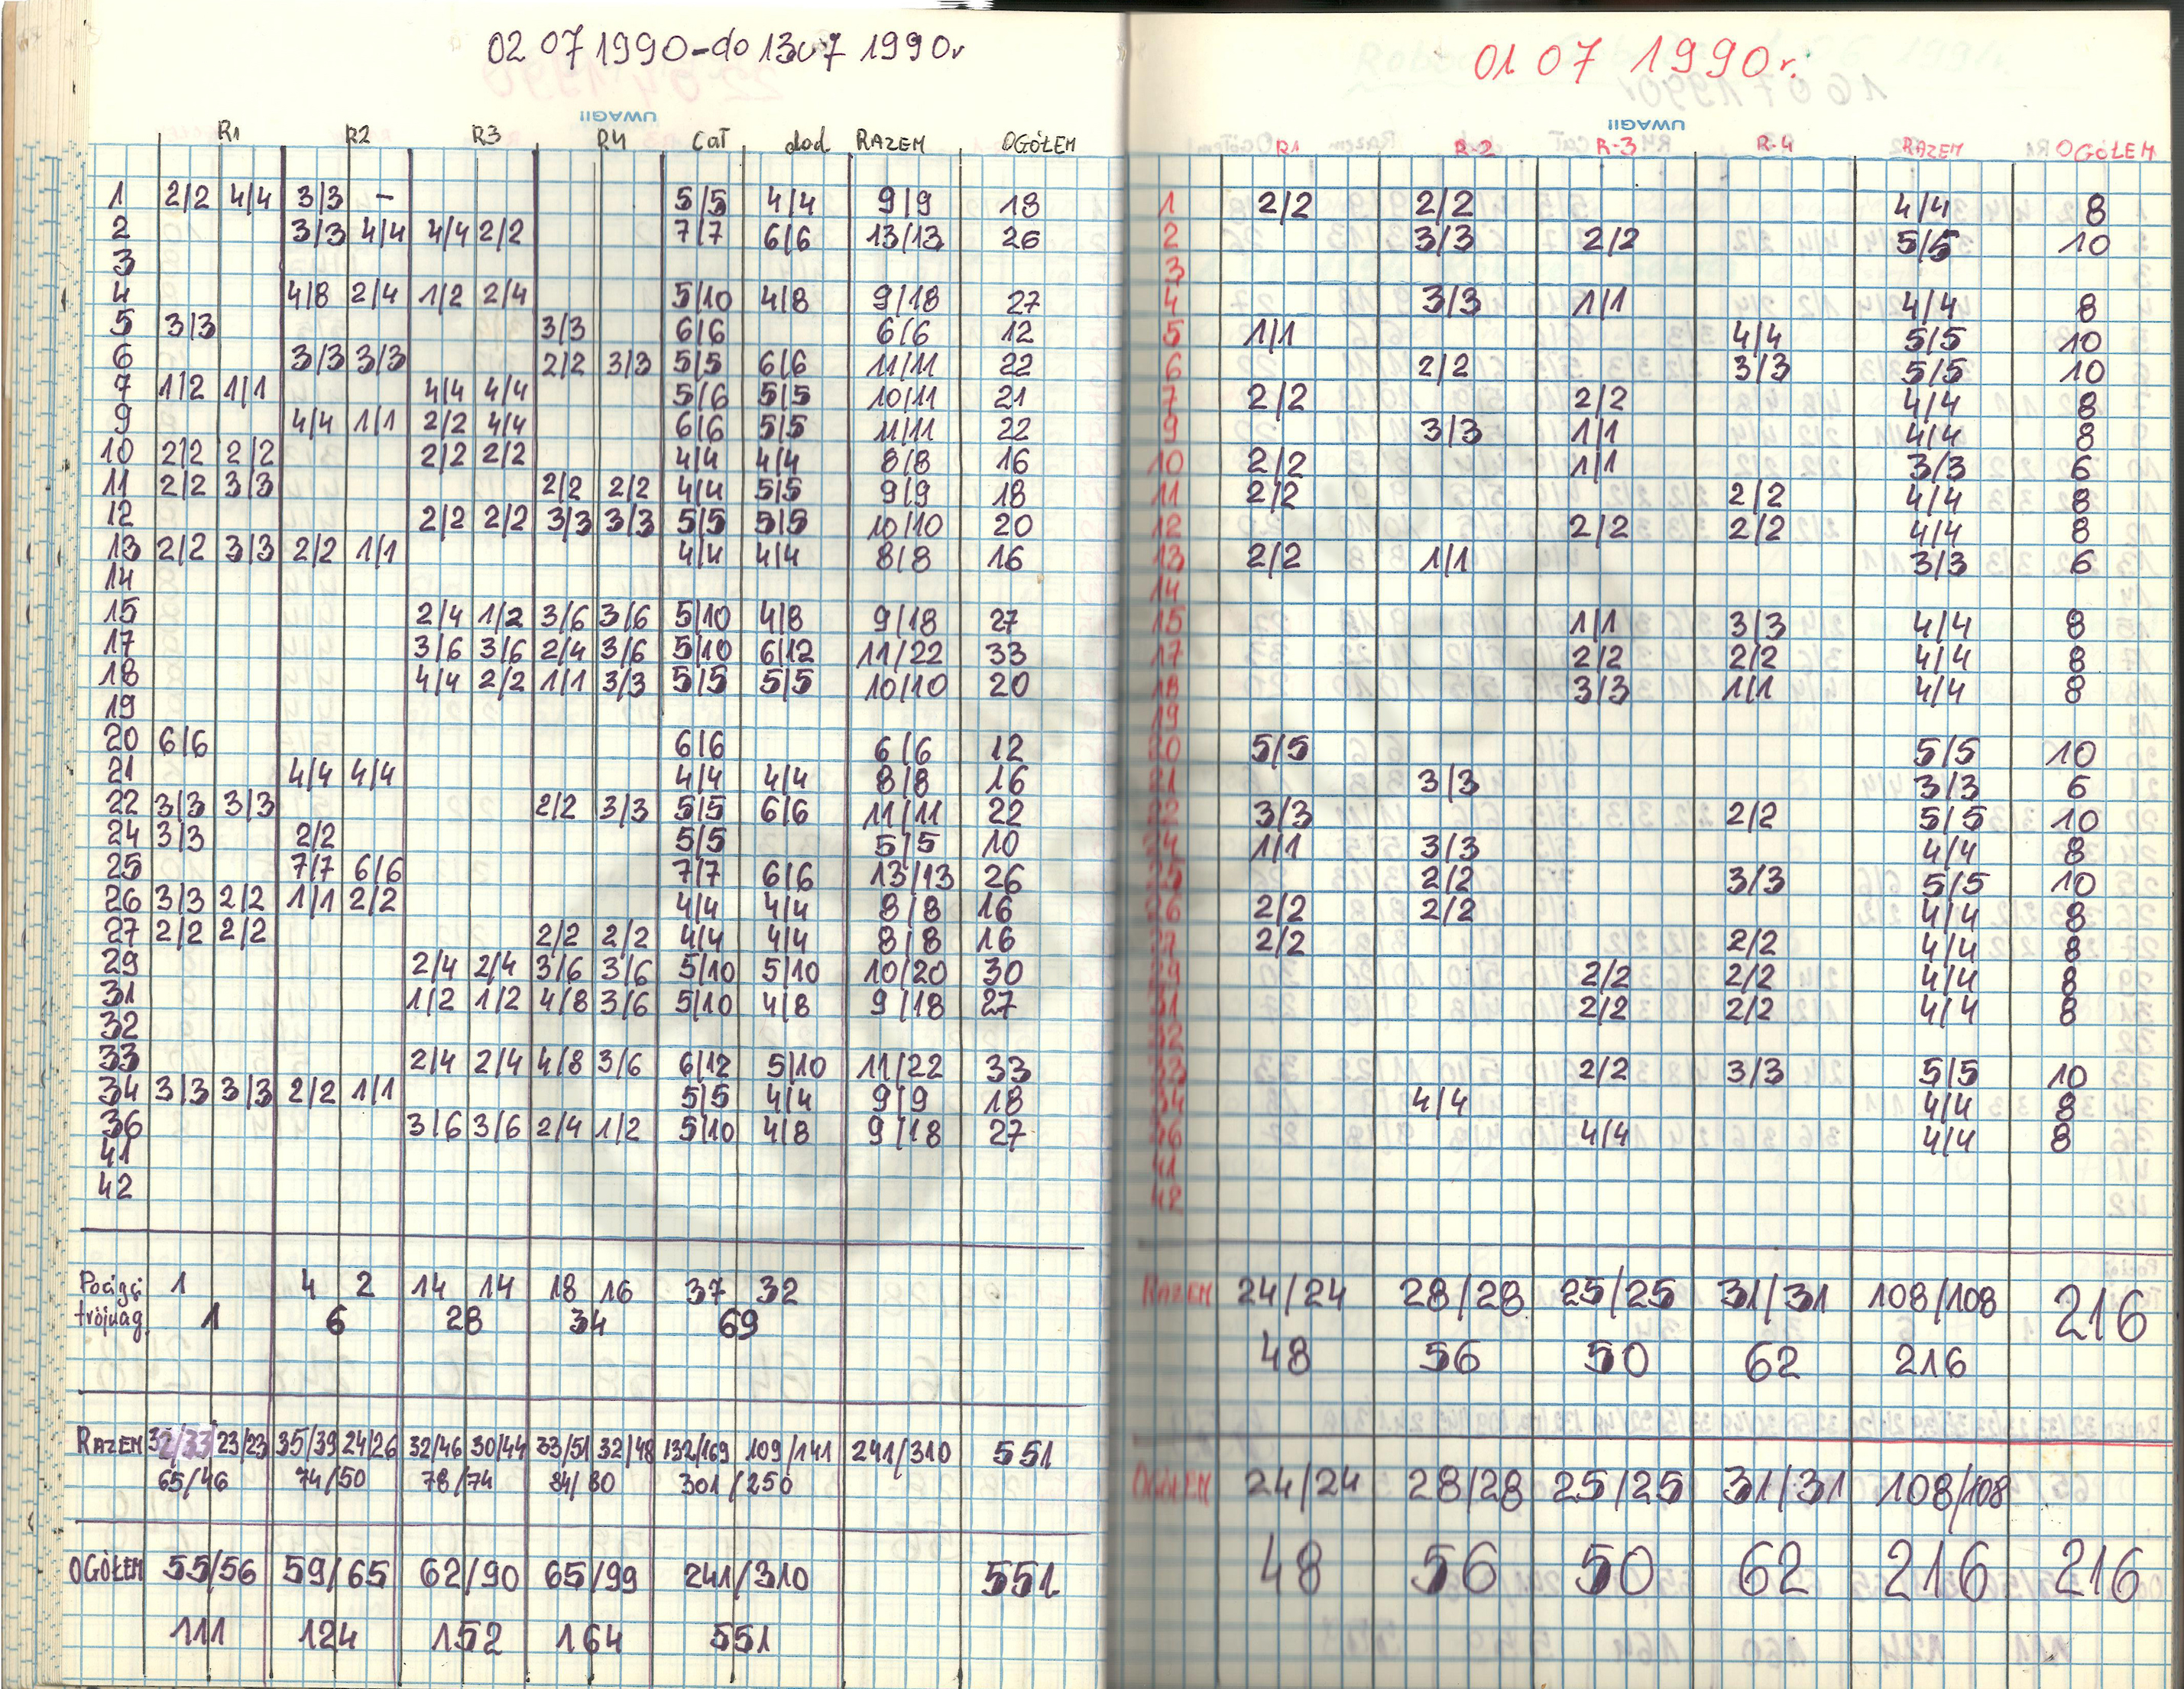 02 07 1990-do 13 07 1990r
UWAGI!
R1 R2 R3 R4 Cał dod RAZEM OGÓŁEM
1 2/2 4/4 3/3 - 5/5 4/4 9/9 18
2 3/3 4/4 4/4 2/2 7/7 6/6 13/13 26
3
4 4/8 2/4 1/2 2/4 5/10 4/8 9/18 27
5 3/3 3/3 6/6 6/6 12
6 3/3 3/3 2/2 3/3 5/5 6/6 11/11 22
7 1/2 1/1 4/4 4/4 5/6 5/5 10/11 21
9 4/4 1/1 2/2 4/4 6/6 5/5 11/11 22
10 2/2 2/2 2/2 2/2 4/4 4/4 8/8 16
11 2/2 3/3 2/2 2/2 4/4 5/5 9/9 18
12 2/2 2/2 3/3 3/3 5/5 5/5 10/10 20
13 2/2 3/3 2/2 1/1 4/4 4/4 8/8 16
14
15 2/4 1/2 3/6 3/6 5/10 4/8 9/18 27
17 3/6 3/6 2/4 3/6 5/10 6/12 11/22 33
18 4/4 2/2 1/1 3/3 5/5 5/5 10/10 20
19
20 6/6 6/6 6/6 12
21 4/4 4/4 4/4 4/4 8/8 16
22 3/3 3/3 2/2 3/3 5/5 6/6 11/11 22
24 3/3 2/2 5/5 5/5 10
25 7/7 6/6 7/7 6/6 13/13 26
26 3/3 2/2 1/1 2/2 4/4 4/4 8/8 16
27 2/2 2/2 2/2 2/2 4/4 4/4 8/8 16
29 2/4 2/4 3/6 3/6 5/10 5/10 10/20 30
31 1/2 1/2 4/8 3/6 5/10 4/8 9/18 27
32
33 2/4 2/4 4/8 3/6 6/12 5/10 11/22 33
34 3/3 3/3 2/2 1/1 5/5 4/4 9/9 18
36 3/6 3/6 2/4 1/2 5/10 4/8 9/18 27
41
42
Pociągi 1 4 2 14 14 18 16 37 32
trójwag. 1 6 28 34 69
RAZEM 32/33 23/23 35/39 24/26 32/46 30/44 33/51 32/48 132/169 109/141 241/310 551
65/46 74/50 78/74 84/80 301/250
OGÓŁEM 55/56 59/65 62/90 65/99 241/310 551
111 124 152 164 551
01 07 1990r.
UWAGI!
R1 R-2 R-3 R-4 RAZEM OGÓŁEM
1 2/2 2/2 4/4 8
2 3/3 2/2 5/5 10
3
4 3/3 1/1 4/4 8
5 1/1 4/4 5/5 10
6 2/2 3/3 5/5 10
7 2/2 2/2 4/4 8
9 3/3 1/1 4/4 8
10 2/2 1/1 3/3 6
11 2/2 2/2 4/4 8
12 2/2 2/2 4/4 8
13 2/2 1/1 3/3 6
14
15 1/1 3/3 4/4 8
17 2/2 2/2 4/4 8
18 3/3 1/1 4/4 8
19
20 5/5 5/5 10
21 3/3 3/3 6
22 3/3 2/2 5/5 10
24 1/1 3/3 4/4 8
25 2/2 3/3 5/5 10
26 2/2 2/2 4/4 8
27 2/2 2/2 4/4 8
29 2/2 2/2 4/4 8
31 2/2 2/2 4/4 8
32
33 2/2 3/3 5/5 10
34 4/4 4/4 8
36 4/4 4/4 8
41
42
RAZEM 24/24 28/28 25/25 31/31 108/108 216
48 56 50 62 216
OGÓŁEM 24/24 28/28 25/25 31/31 108/108
48 56 50 62 216 216